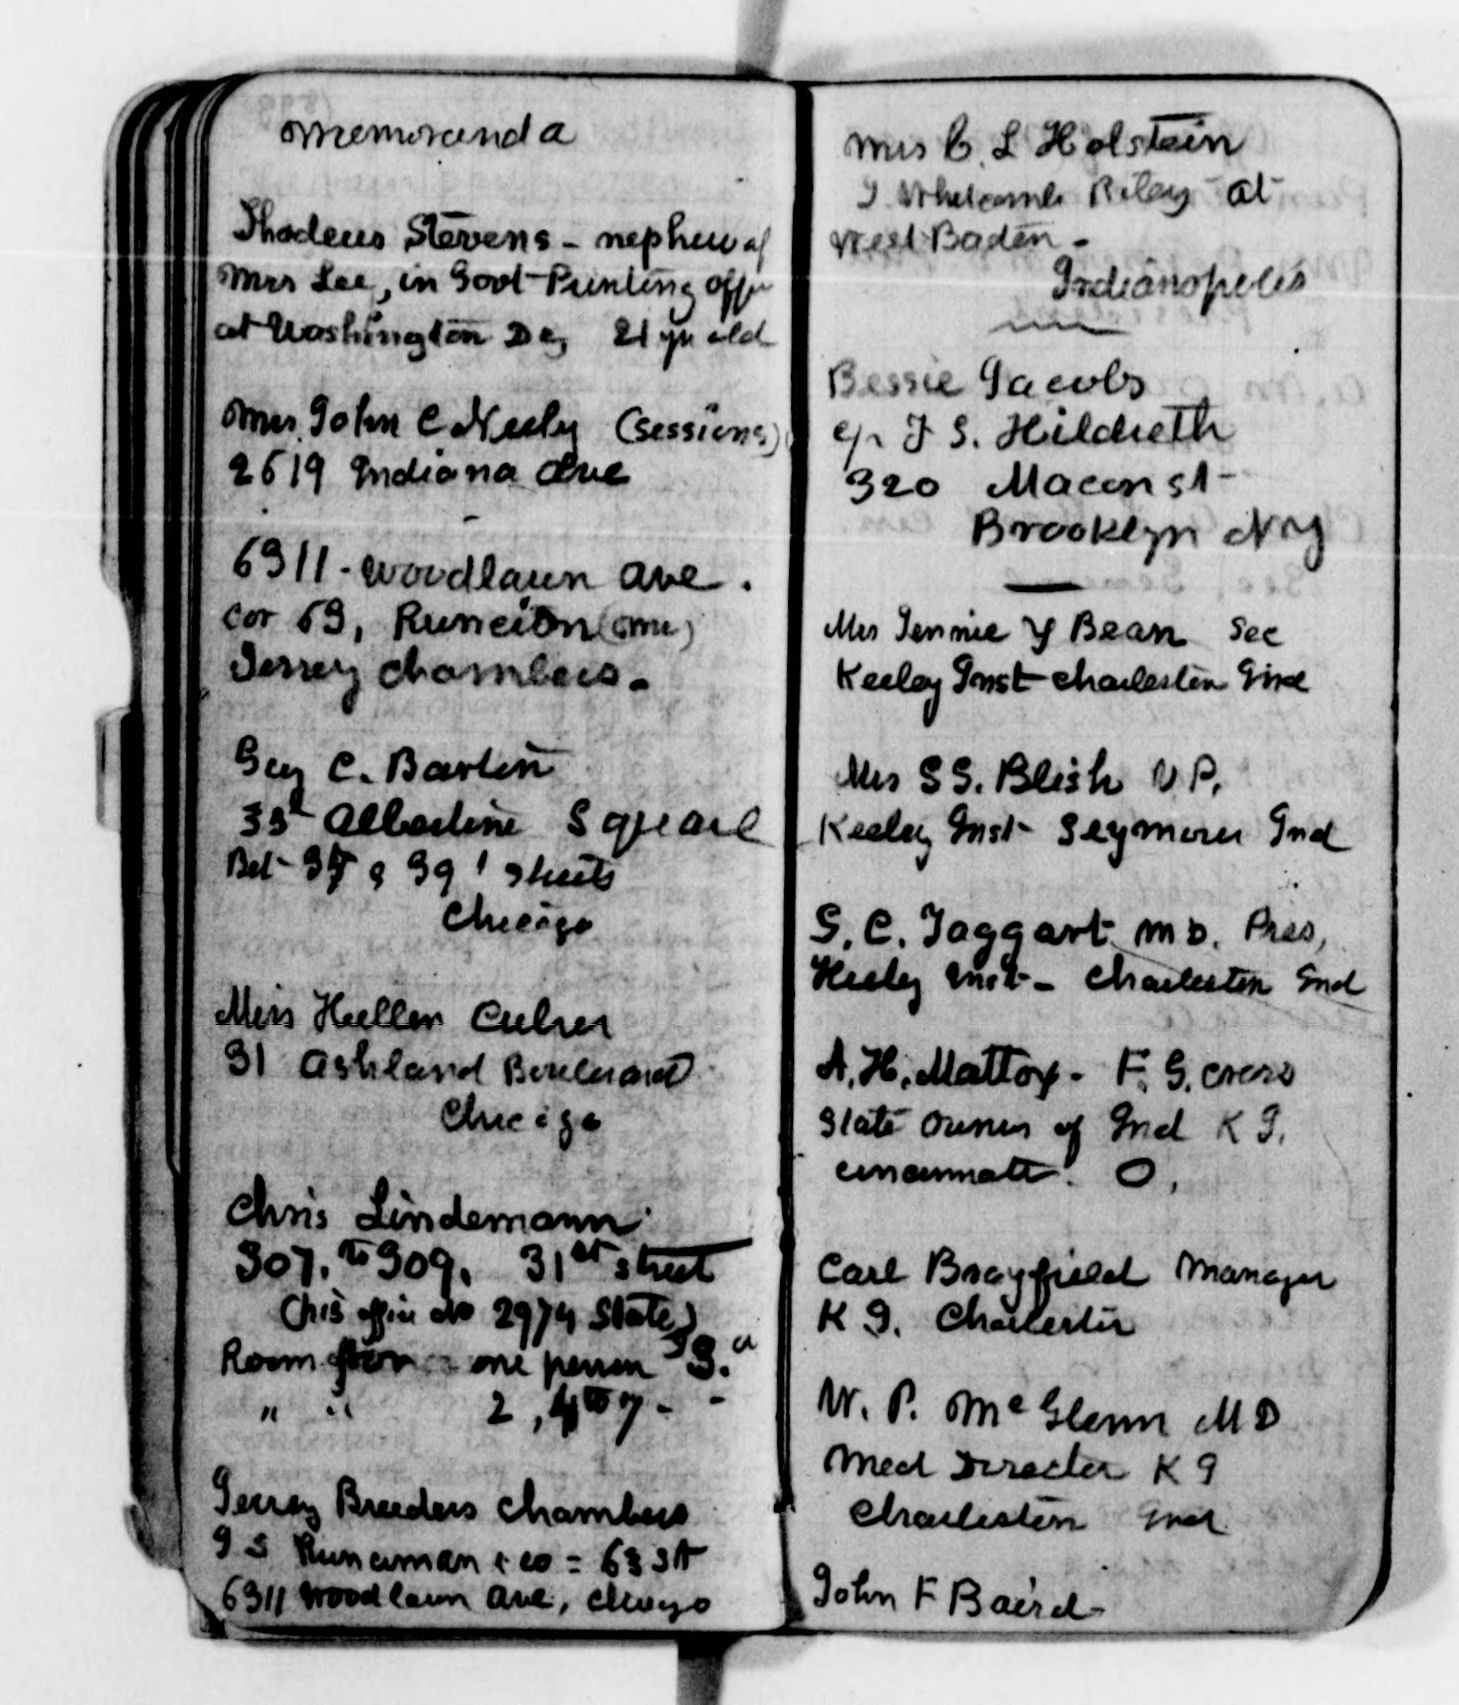 Memoranda
Thadeus Stevens - nephew of
Mrs Lee, in Govt Printing Office
at Washington DC, 21 yrs old
Mrs. John C Neely (Sessions)
2619 Indiana Ave
6311 - Woodlawn Ave.
Cor 63, Runcion
Jersey Chambers.
Guy C. Bartin
Square
Bet 37 & 39 Streets
Chicago
Miss Hellen Culver
31 Ashland Boulevard
Chicago
Chris Lindemann
307. to 309. 31st street
(his office No 2974 State)
Room one person 3.
" " 2, 4 to 7 - -
Jersey Breeders Chambers
Runciman & co = 63 St
6311 Woodlawn Ave, Chicago
Mrs C. L Holstein
J Whitcomb Riley at
West Baden -
Indianopolis
Bessie Jacobs
c/o F S. Hildreth
320 Macon st
Brooklyn NY
Mrs Jennie Y Bean Sec
Keeley Inst Charleston Ind
Mrs S S. Blish V P.
Keeley Inst Seymour Ind
G. C. Taggart M D. Pres,
Keeley Inst - Charleston Ind
A. H. Mattox - F. G. Cross
State Owners of Ind K I.
Cincinnati. O.
Carl Brayfield Manager
K I. Charlestin
W. P. McGlenn M D
Med Directer K I
Charleston Ind
John F Baird